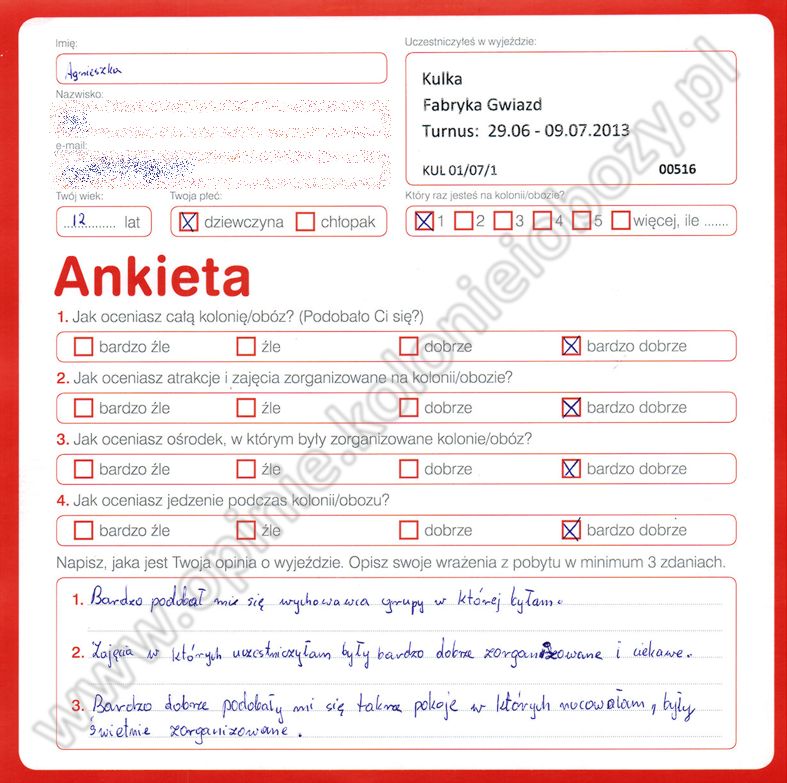 Imię:
Agnieszka
Nazwisko:
e-mail:
Twój wiek:
12 lat
Twoja płeć:
dziewczyna chłopak
Uczestniczyłeś w wyjeździe:
Kulka
Fabryka Gwiazd
Turnus: 29.06 - 09.07.2013
KUL 01/07/1 00516
Który raz jesteś na kolonii/obozie?
1 2 3 4 5 więcej, ile .......
Ankieta
1. Jak oceniasz całą kolonię/obóz? (Podobało Ci się?)
bardzo źle źle dobrze bardzo dobrze
2. Jak oceniasz atrakcje i zajęcia zorganizowane na kolonii/obozie?
bardzo źle źle dobrze bardzo dobrze
3. Jak oceniasz ośrodek, w którym były zorganizowane kolonie/obóz?
bardzo źle źle dobrze bardzo dobrze
4. Jak oceniasz jedzenie podczas kolonii/obozu?
bardzo źle źle dobrze bardzo dobrze
Napisz, jaka jest Twoja opinia o wyjeździe. Opisz swoje wrażenia z pobytu w minimum 3 zdaniach.
1. Bardzo podobał mie się wychowawca grupy w której byłam.
2. Zajęcia w których uczestniczyłam były bardzo dobrze zorganizowane i ciekawe.
3. Bardzo dobrze podobały mi się także pokoje w których nocowałam, były
świetnie zorganizowane.
www.opinie.kolonieiobozy.pl